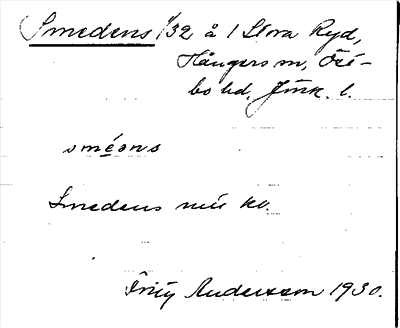 Smedens 1/32 å 1 Stora Ryd,
Hångers sn, Öst-
bo hd, Jönk. l.
sméans
Smedens
Andersson 1930.